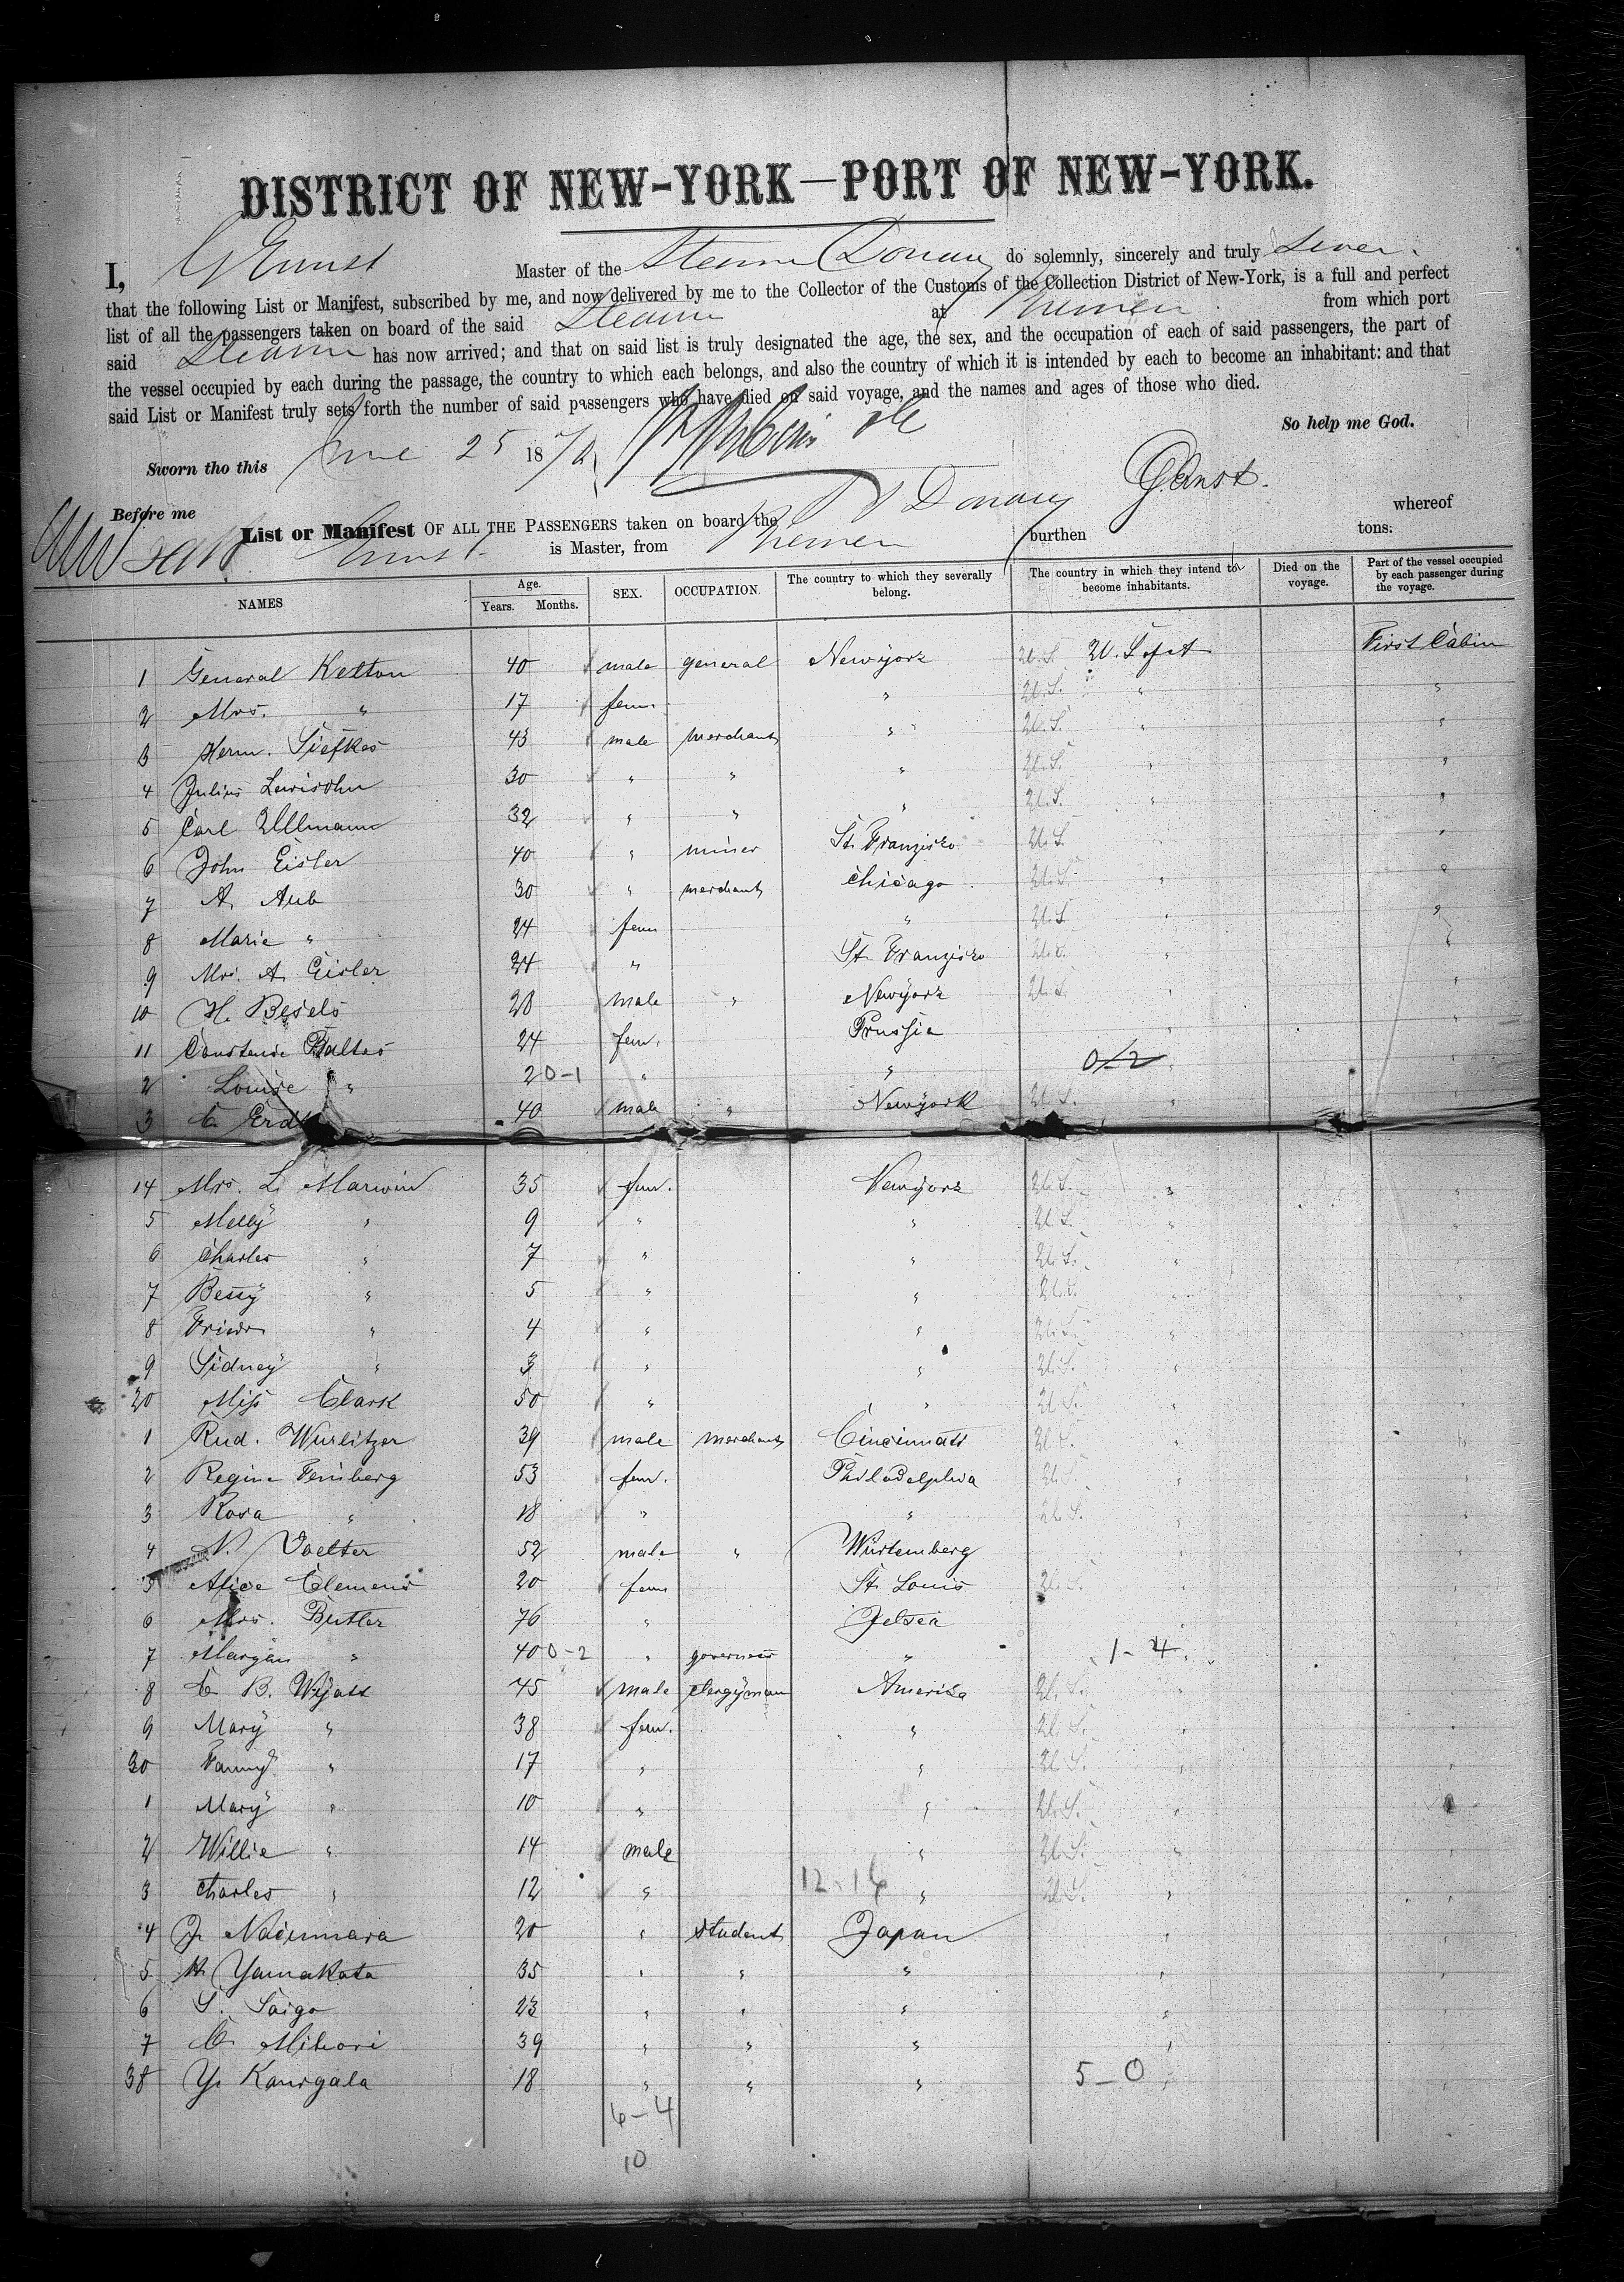 DISTRICT OF NEW-YORK—PORT OF NEW-YORK.
I, G Ernst Master of the Steam Donau do solemnly, sincerely and truly swear
that the following List or Manifest, subscribed by me, and now delivered by me to the Collector of the Customs of the Collection District of New-York, is a full and perfect
list of all the passengers taken on board of the said Steam at Bremen from which port
said Steam has now arrived; and that on said list is truly designated the age, the sex, and the occupation of each of said passengers, the part of
the vessel occupied by each during the passage, the country to which each belongs, and also the country of which it is intended by each to become an inhabitant: and that
said List or Manifest truly sets forth the number of said passengers who have died on said voyage, and the names and ages of those who died.
So help me God.
Sworn tho this June 25 1870
G Ernst.
Before me
List or Manifest OF ALL THE PASSENGERS taken on board the Donau whereof
Ernst is Master, from Bremen burthen tons.
NAMES Age. Years. Months. SEX. OCCUPATION. The country to which they severally belong. The country in which they intend to become inhabitants. Died on the voyage. Part of the vessel occupied by each passenger during the voyage.
1 General Kelton 40 male general Newyork U.S. First Cabin
2 Mrs. " 17 fem. " U.S. " "
3 Herm. Siefkes 43 male merchant " U.S. " "
4 Julius Lewisohn 30 " " " U.S. " "
5 Carl Ullmann 32 " " " U.S. " "
6 John Eisler 40 " miner St. Franzisko U.S. "
7 A. Aub 30 " merchant Chicago U.S. " "
8 Marie " 24 fem " U.S. " "
9 Mrs. A. Eisler 24 " St. Franzisko U.S. " "
10 H. Besels 28 male " Newyork U.S. " "
11 Baltes 24 fem. Prussia " "
2 Louise " 2 0-1 " " 0-2 " "
3 C. 40 male " Newyork U.S. " "
14 Mrs. L. Marwin 35 fem. Newyork U.S. " "
5 Melly " 9 " " U.S. " "
6 Charles " 7 " " U.S. " "
7 Bessy " 5 " " U.S. " "
8 " 4 " " U.S. " "
9 Sidney " 3 " " U.S. " "
20 Miss Clark 50 " " U.S. " "
1 Rud. Wurlitzer 39 male merchant Cincinnati U.S. " "
2 Regina Feinberg 53 fem. Philadelphia U.S. " "
3 Rosa " 18 " " U.S. " "
4 N. Voelter 52 male " Würtemberg " "
5 Alice Clemens 20 fem St. Louis U.S. " "
6 Mrs. Butler 76 "
7 " 40 0-2 " governess " 1-4 "
8 C. B. Wyatt 45 male clergyman America U.S. " "
9 Mary " 38 fem. " U.S. " "
30 Fanny " 17 " " U.S. " "
1 Mary " 10 " " U.S. "
2 Willie " 14 male " U.S. " "
3 Charles " 12 " 12.14 " U.S. " "
4 20 " student Japan " "
5 Yamakata 35 " " " " "
6 S. Saigo 23 " " " " "
7 C. Mihori 39 " " " " "
38 Y. 18 " " " 5-0 " "
6-4
10